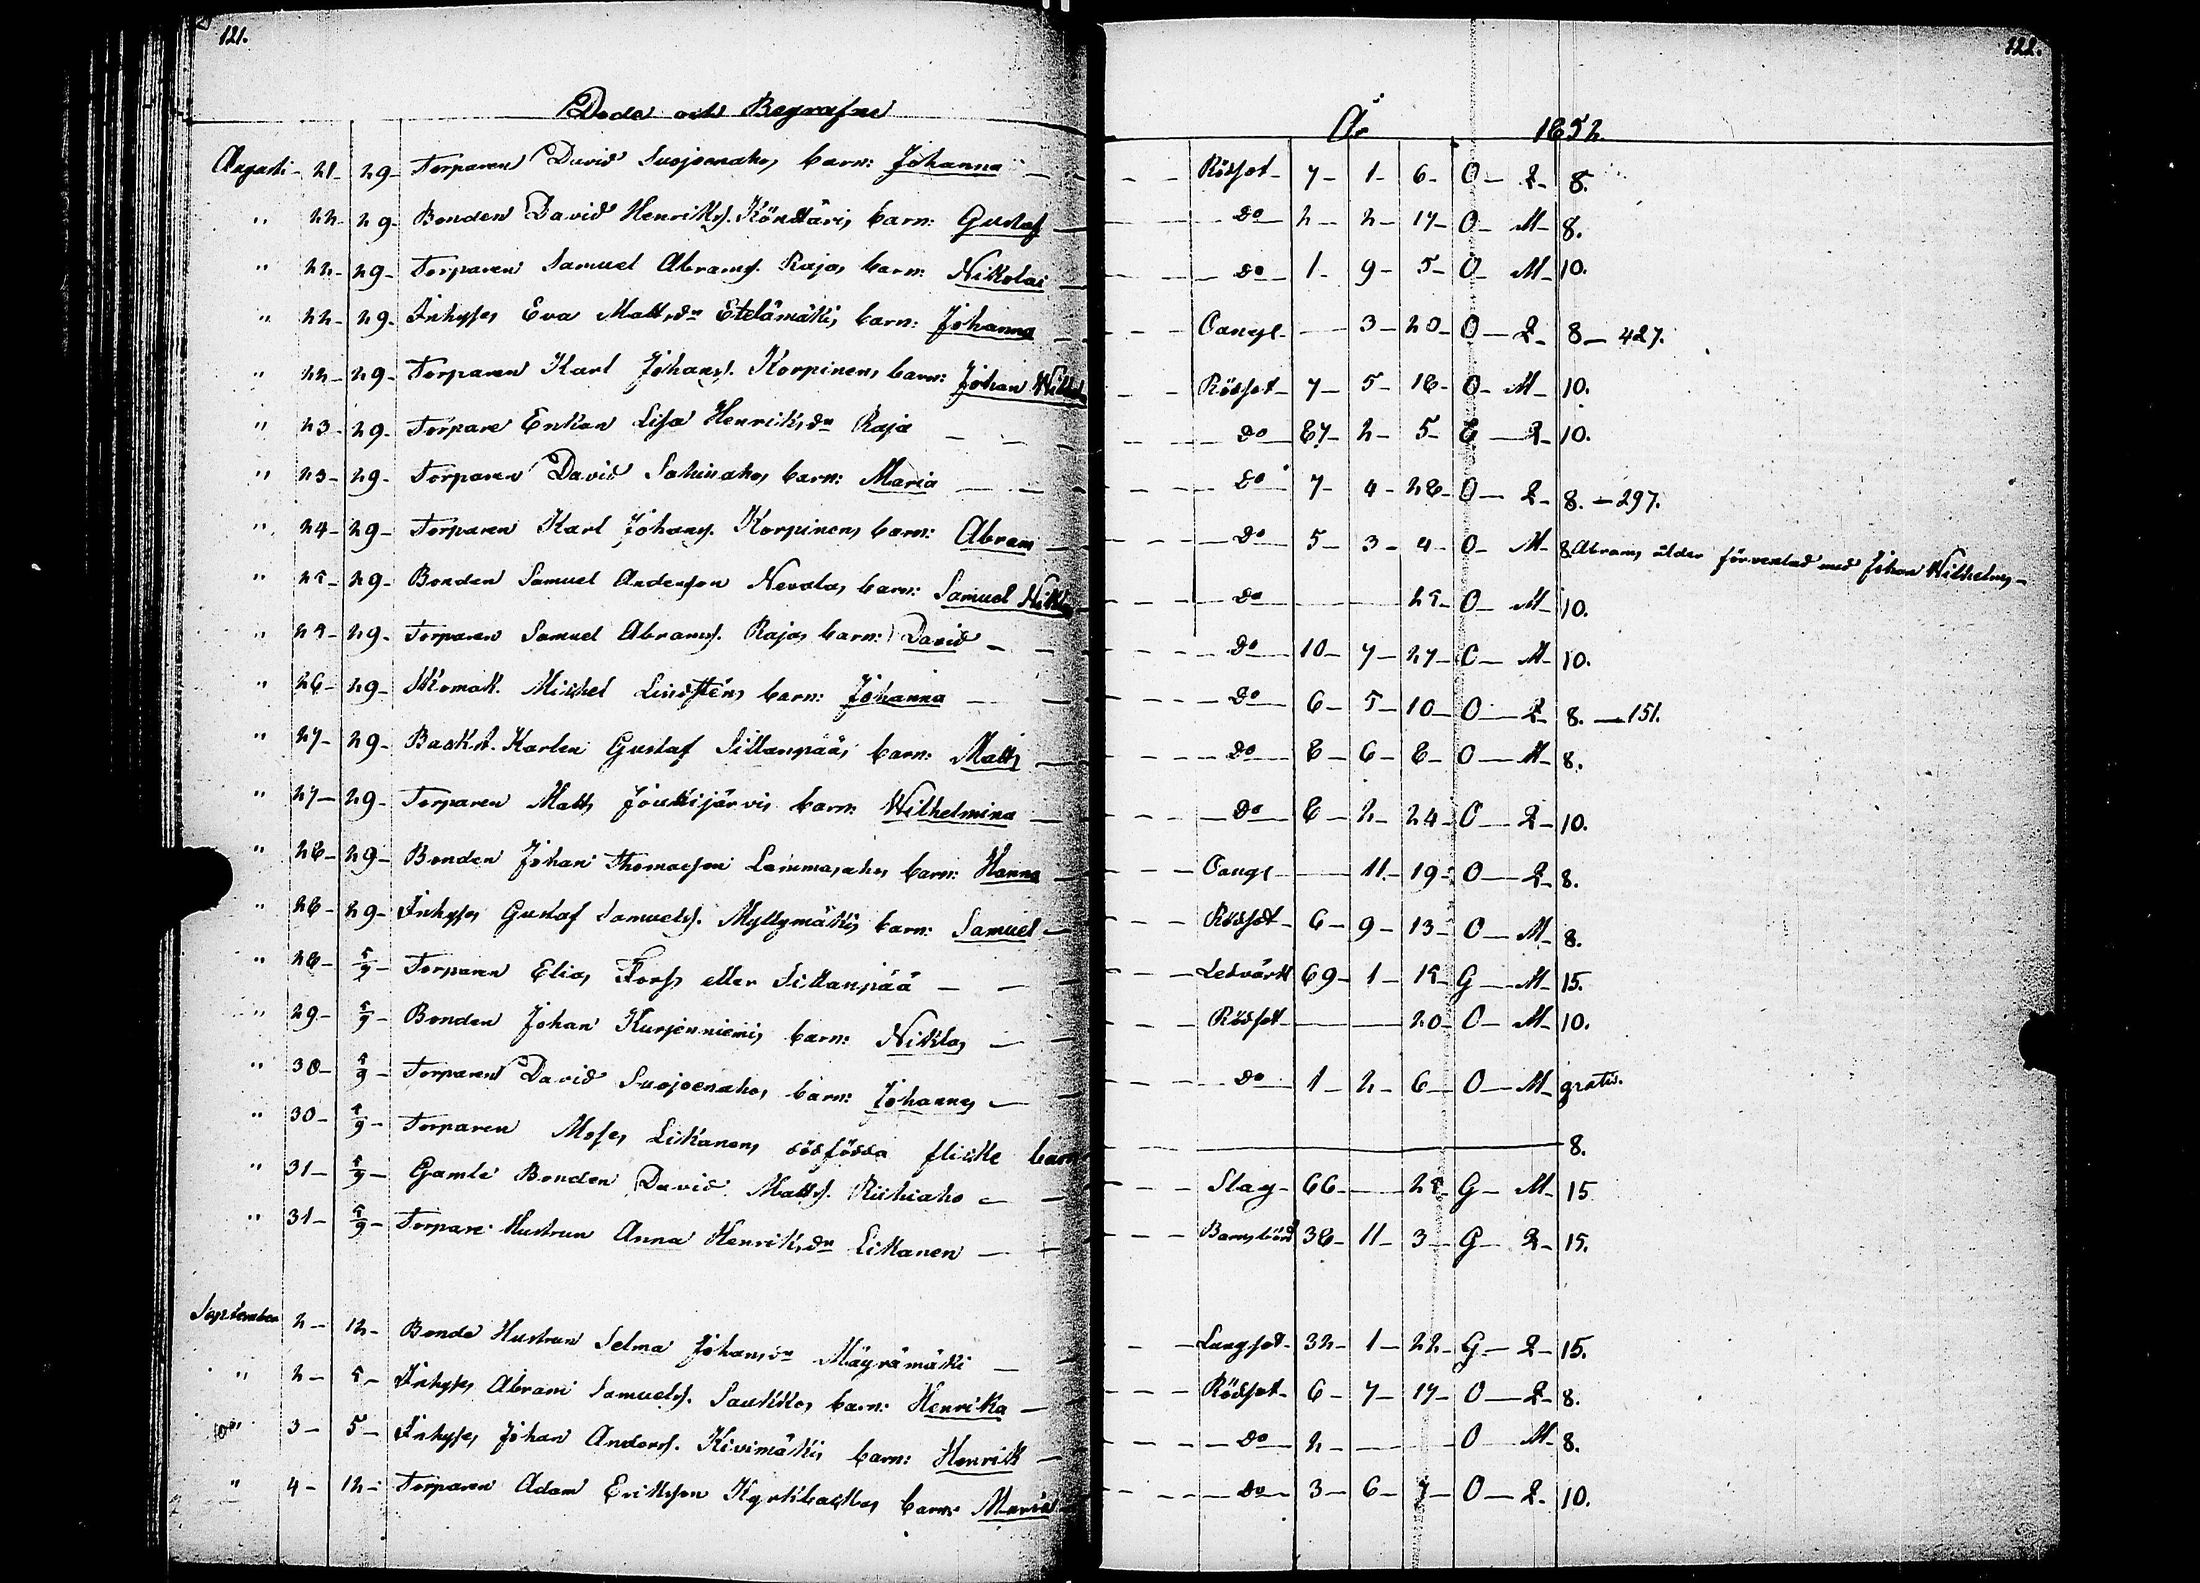 121.
122.
Döde och Begrafne År 1852.
Augusti - 21 - 29 - Torparen David Suojoenahos barn: Johanna - - Rödsot - 7 - 1 - 6 - O - Q - 8.
" 22 - 29 - Bonden David Henriks. Köntäris barn: Gustaf - Do - 2 - 2 - 17 - O - M - 8.
" 22 - 29 - Torparen Samuel Abrams. Rajas barn: Nikolai - Do - 1 - 9 - 5 - O - M - 10.
" 22 - 29 - Inhyses Eva Mattsdr Etelämäkis barn: Johanna - - 3 - 20 - O - Q - 8 - 427.
" 22 - 29 - Torparen Karl Johans. Korpinens barn: Johan Wilhelm - Rödsot - 7 - 5 - 18 - O - M - 10.
" 23 - 29 - Torpare Enkan Lisa Henriksdr Raja - - Do - 87 - 2 - 5 - E - Q - 10.
" 23 - 29 - Torparen David barn: Maria - - Do - 7 - 4 - 28 - O - Q - 8. - 297.
" 24 - 29 - Torparen Karl Johans. Korpinens barn: Abram - Do - 5 - 3 - 4 - O - M - 8. Abrams ålder förvexlad med Johan Wilhelms -
" 25 - 29 - Bonden Samuel Anderson Nevalas barn: Samuel - Do - - 25 - O - M - 10.
" 25 - 29 - Torparen Samuel Abrams. Rajas barn: David - - Do - 10 - 7 - 27 - O - M - 10.
" 26 - 29 - Skomak. Mickel Lindsténs barn: Johanna - - Do - 6 - 5 - 10 - O - Q - 8. - 151.
" 27 - 29 - Karlen Gustaf Sillanpääs barn: Matts - Do - 8 - 6 - 8 - O - M - 8.
" 27 - 29 - Torparen Matts Joukkijärvis barn: Wilhelmina - Do - 8 - 2 - 24 - O - Q - 10.
" 28 - 29 - Bonden Johan Thomasson Lammasahos barn: Hanna - - 11 - 19 - O - Q - 8.
" 28 - 29 - Inhyses Gustaf Samuels. Myllymäkis barn: Samuel - Rödsot - 6 - 9 - 13 - O - M - 8.
" 28 - 5/9 - Torparen Elias Forss eller Sillanpää - - Ledvärk 69 - 1 - 15 - G - M - 15.
" 29 - 5/9 - Bonden Johan Kurjenniemis barn: Niklas - - Rödsot - - 20 - O - M - 10.
" 30 - 5/9 - Torparen David Suojoenahos barn: Johannes - - Do - 1 - 2 - 6 - O - M - gratis.
" 30 - 5/9 - Torparen Moses Likanens dödfödda flicke barn - 8.
" 31 - 5/9 - Gamle Bonden David Matts. Riihiaho - - Slag - 66 - - 25 - G - M - 15
" 31 - 5/9 - Torpare Hustrun Anna Henriksdr Likanen - - Barnsbörd 38 - 11 - 3 - G - Q - 15.
September 2 - 12 - Bonde Hustrun Selma Johansdr Mäyrämäki - - Lungsot - 32 - 1 - 22 - G - Q - 15.
" 2 - 5 - Inhyses Abram Samuels. Saukkos barn: Henrika - - Rödsot - 6 - 7 - 17 - O - Q - 8.
" 3 - 5 - Inhyses Johan Anders. Kivimäkis barn: Henrik - - Do - 2 - - - O - M - 8.
" 4 - 12 - Torparen Adam Eriksson barn: Maria - Do - 3 - 6 - 7 - O - Q - 10.